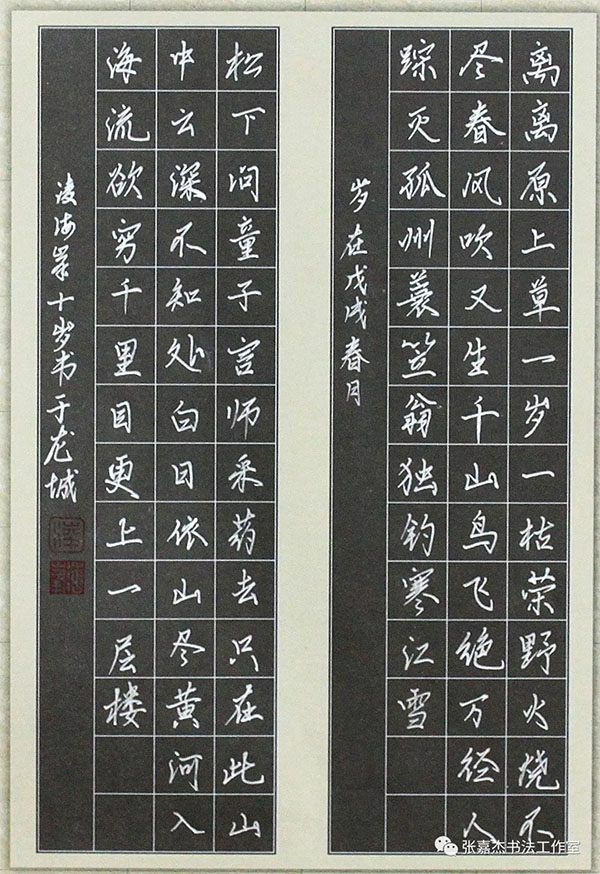 离离原上草一岁一枯荣野火烧不
尽春风吹又生千山鸟飞绝万径人
踪灭孤州蓑笠翁独钓寒江雪
岁在戊戌春月
松下问童子言师采药去只在此山
中云深不知处白日依山尽黄河入
海流欲穷千里目更上一层楼
凌海十岁书于龙城
张嘉杰书法工作室